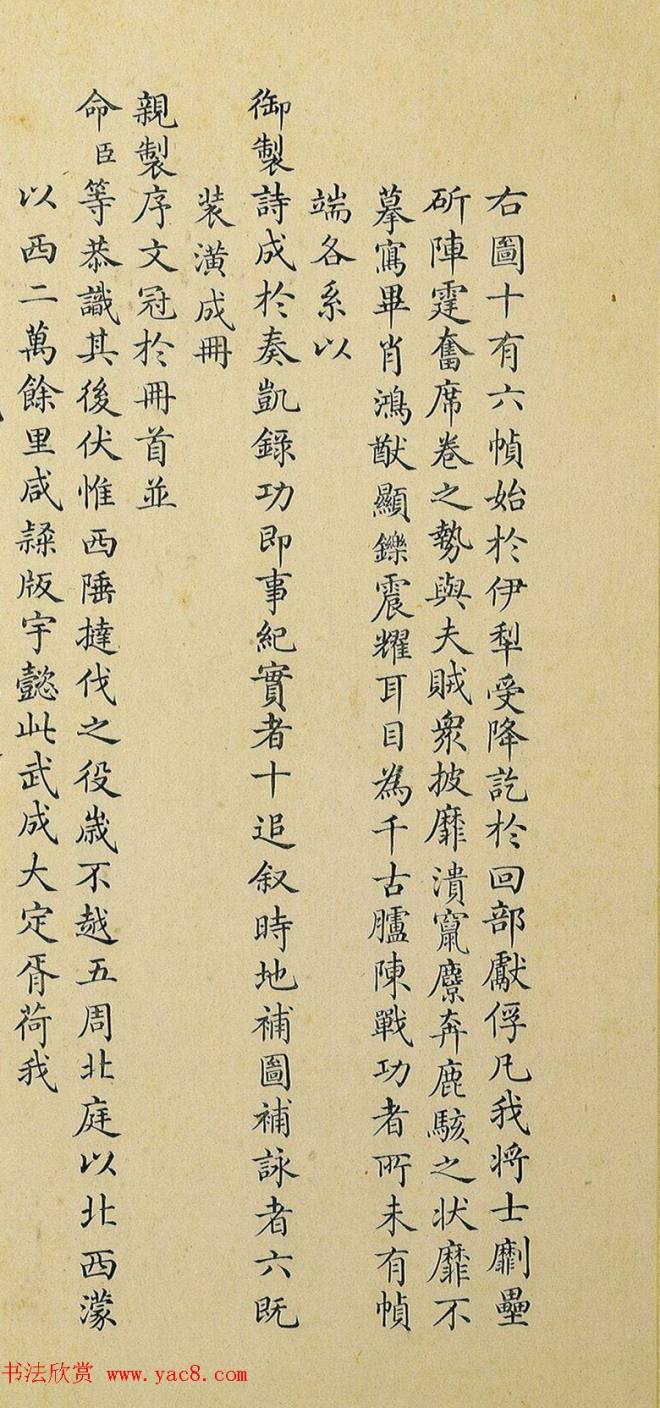 右圖十有六幀始於伊犁受降訖於回部獻俘凡我將士劘壘
斫陣霆奮席卷之勢與夫賊衆披靡潰竄麇奔鹿駭之状靡不
摹寫畢肖鴻猷顯鑠震耀耳目為千古臚陳戰功者所未有幀
端各系以
御製詩成於奏凱錄功即事紀實者十追叙時地補圖補詠者六既
装潢成冊
親製序文冠於冊首並
命臣等恭識其後伏惟西陲撻伐之役嵗不越五周北庭以北西濛
以西二萬餘里咸隷版宇懿此武成大定胥荷我
书法欣赏 www.yac8.com